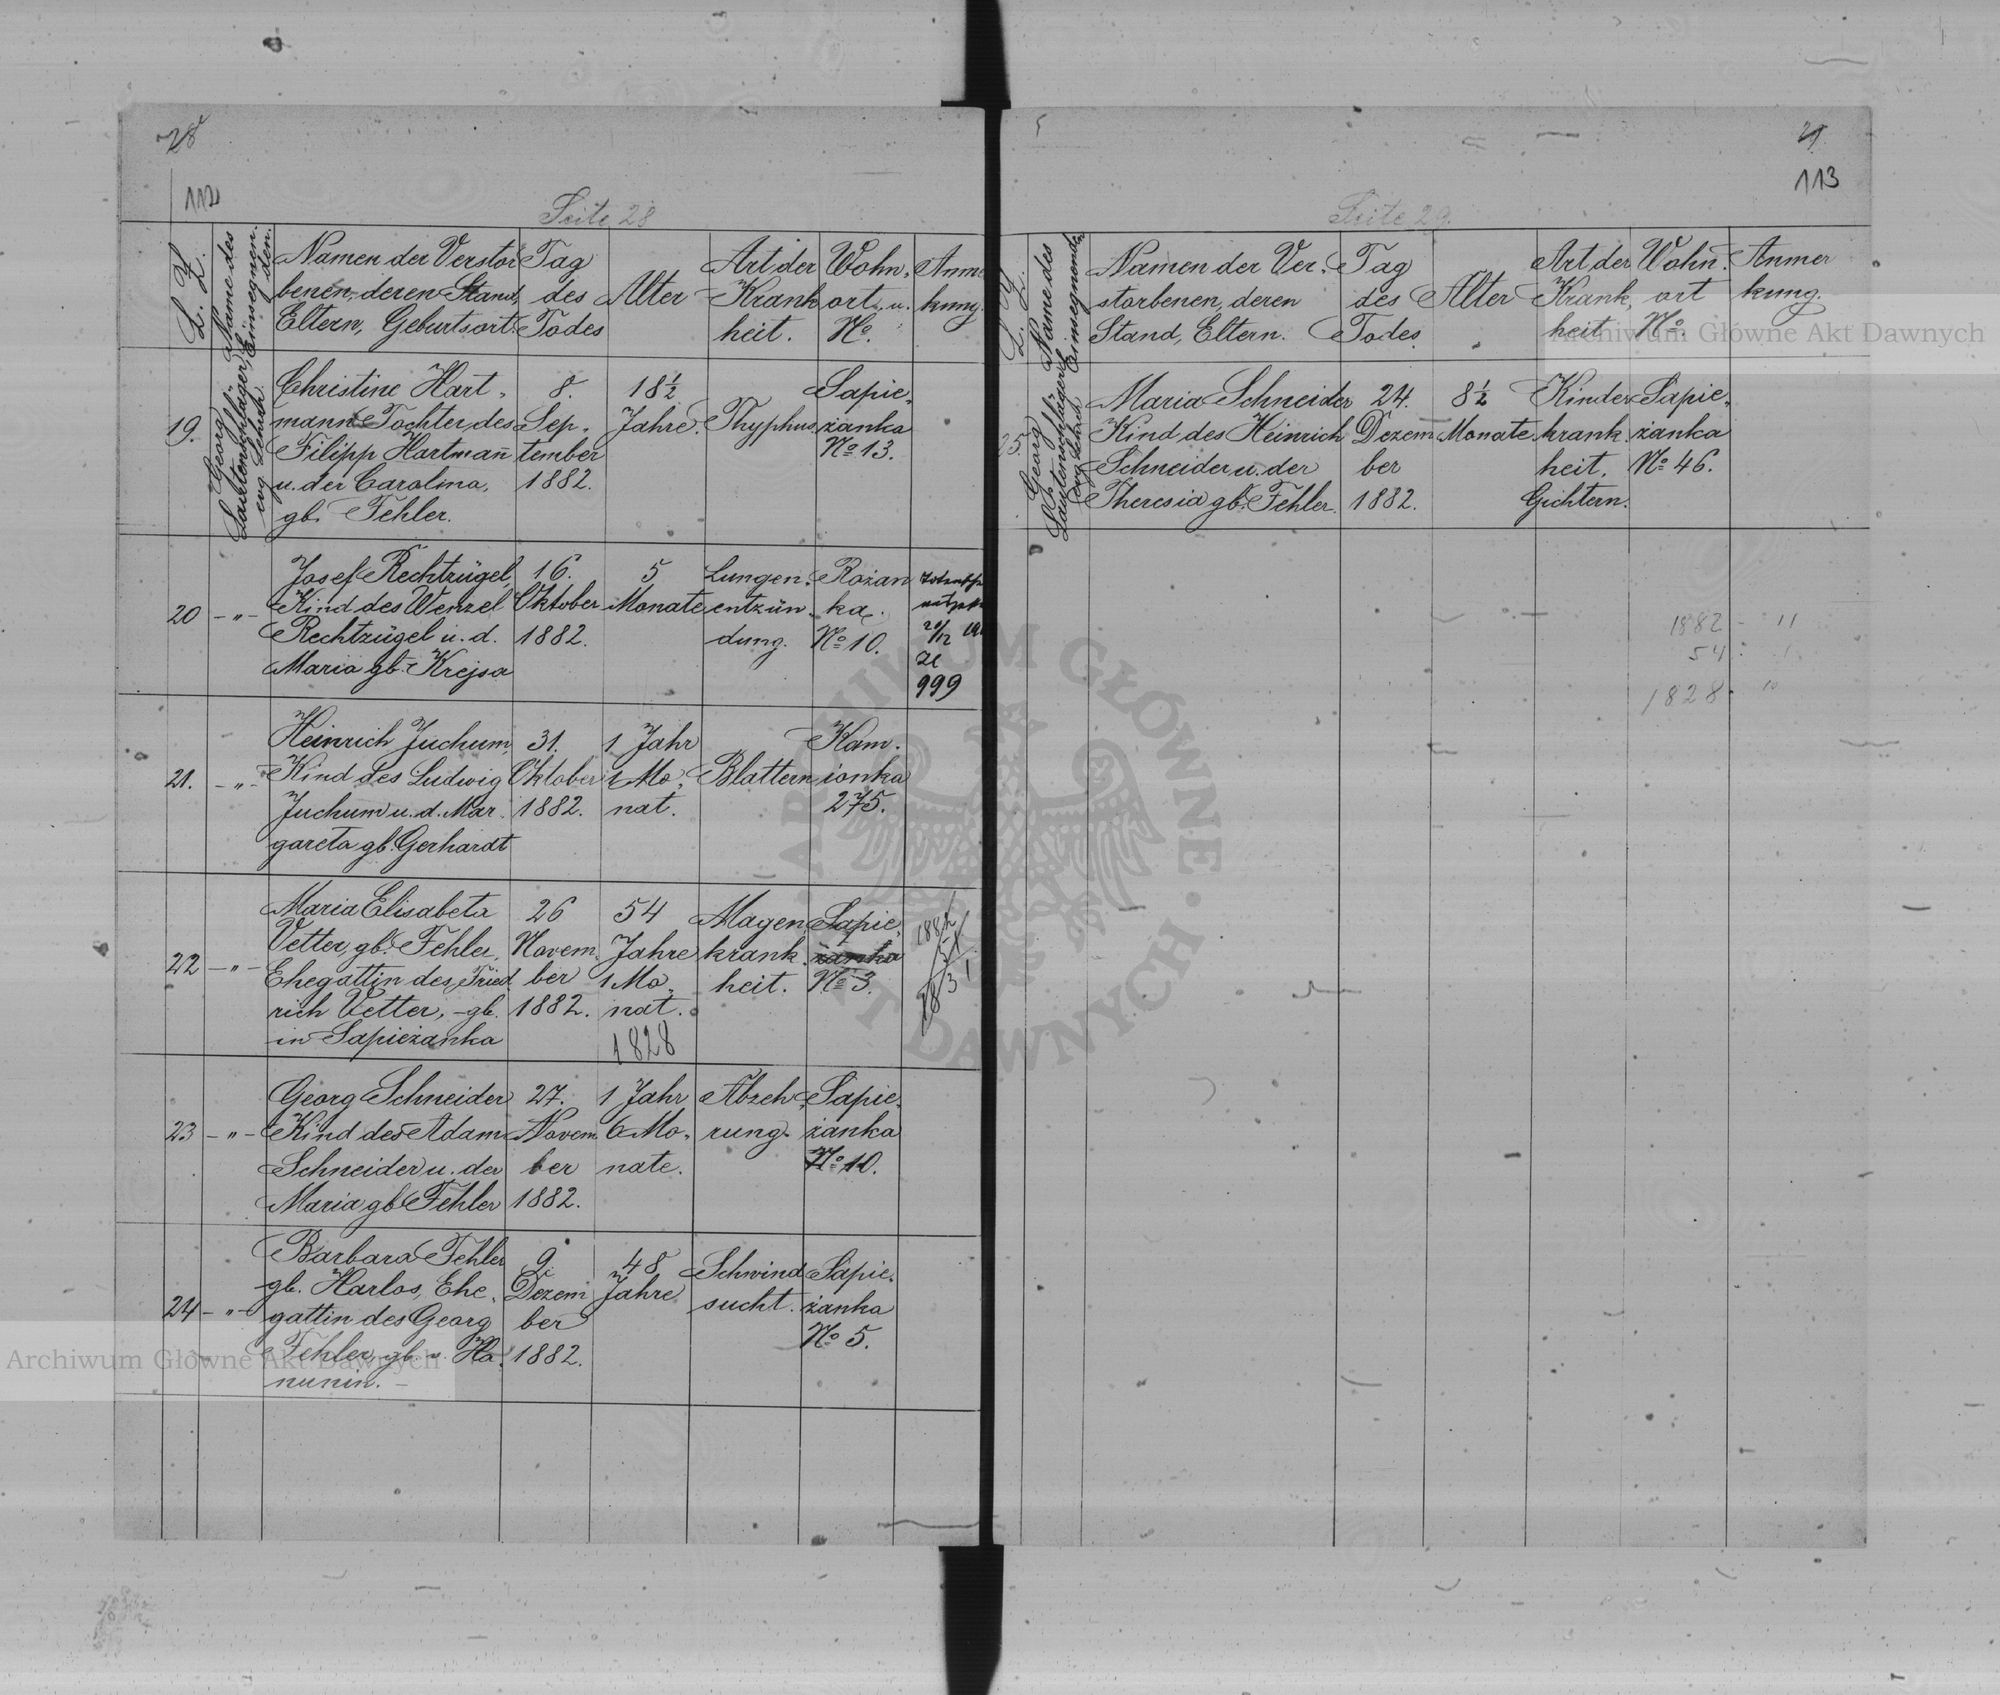 28
112
Seite 28
L. Z.
Name des
Einsegnen-
den.
Namen der Verstor
benen, deren Stand,
Eltern, Geburtsort.
Tag
des
Todes
Alter
Art der
Krank
heit.
Wohn,
ort u.
No.
Anm.
kung.
19.
Georg
Lautenschläger,
evg. Lehrer.
Christine Hart,
mann Tochter des
Filipp Hartman̄
u. der Carolina,
gb. Fehler.
8.
Sep,
tember
1882.
18½
Jahre.
Thyphus.
Sapie,
żanka
No 13.
20
-"-
Josef Rechtzügel,
Kind des Wenzel
Rechtzügel u. d.
Maria gb. Krejsa
16.
Oktober
1882.
5
Monate
Lungen,
entzün,
dung.
Rozan
ka.
No 10.
20/12
ze
999
21.
-"-
Heinrich Juchum,
Kind des Ludwig
Juchum u. d. Mar,
gareta gb. Gerhardt
31.
Oktober
1882.
1 Jahr
1 Mo,
nat.
Blattern
Kam,
ionka
275.
22
-"-
Maria Elisabeta
Vetter, gb. Fehler,
Ehegattin des Fried,
rich Vetter, gb.
in Sapieżanka
26
Novem,
ber
1882.
54
Jahre
1 Mo,
nat.
1828
Magen,
krank,
heit.
Sapie,
żanka
No 3.
1882
23
-"-
Georg Schneider
Kind des Adam
Schneider u. der
Maria gb. Fehler
27.
Novem,
ber
1882.
1 Jahr
6 Mo,
nate.
Abzeh,
rung.
Sapie,
żanka
No 10.
24
-"-
Barbara Fehler
gb. Harlos, Ehe,
gattin des Georg
Fehler, gb. Ha,
nunin.
9.
Dezem
ber
1882.
48
Jahre
Schwind
sucht.
Sapie,
żanka
No 5.
29
113
Seite 29.
L. Z.
Name des
Einsegnenden
Namen der Ver,
storbenen, deren
Stand, Eltern.
Tag
des
Todes.
Alter
Art der
Krank,
heit
Wohn,
ort
No.
Anmer
kung.
25.
Georg
Lautenschläger
evg. Lehrer.
Maria Schneider
Kind des Heinrich
Schneider u. der
Theresia gb. Fehler.
24.
Dezem
ber
1882.
8½
Monate
Kinder
krank
heit,
Gichtern.
Sapie,
żanka
No 46.
1882 - 11
54 : 1
1828 - 10
Archiwum Główne Akt Dawnych
Archiwum Główne Akt Dawnych
ARCHIWUM GŁÓWNE · AKT DAWNYCH ·